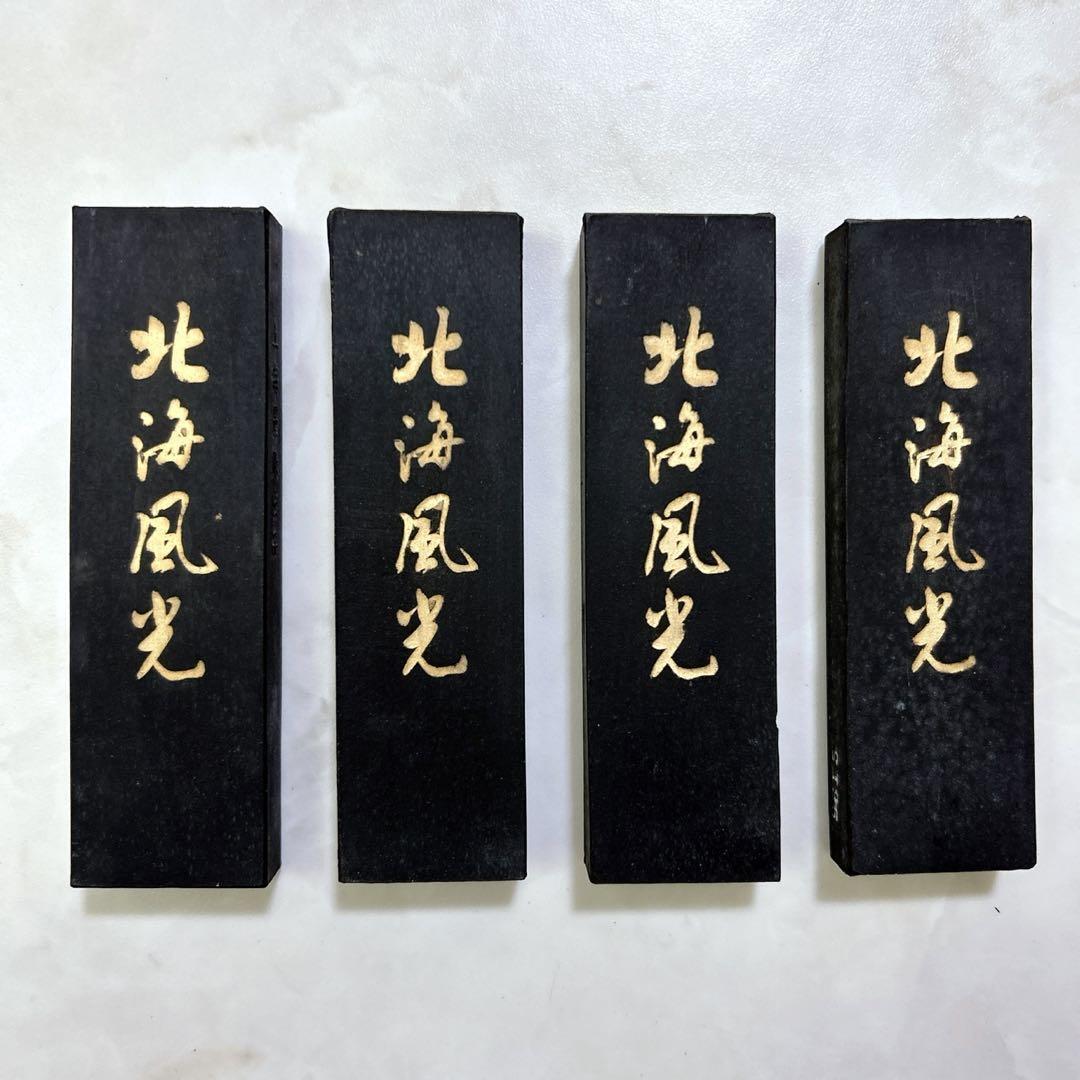 北海風光
北海風光
北海風光
北海風光